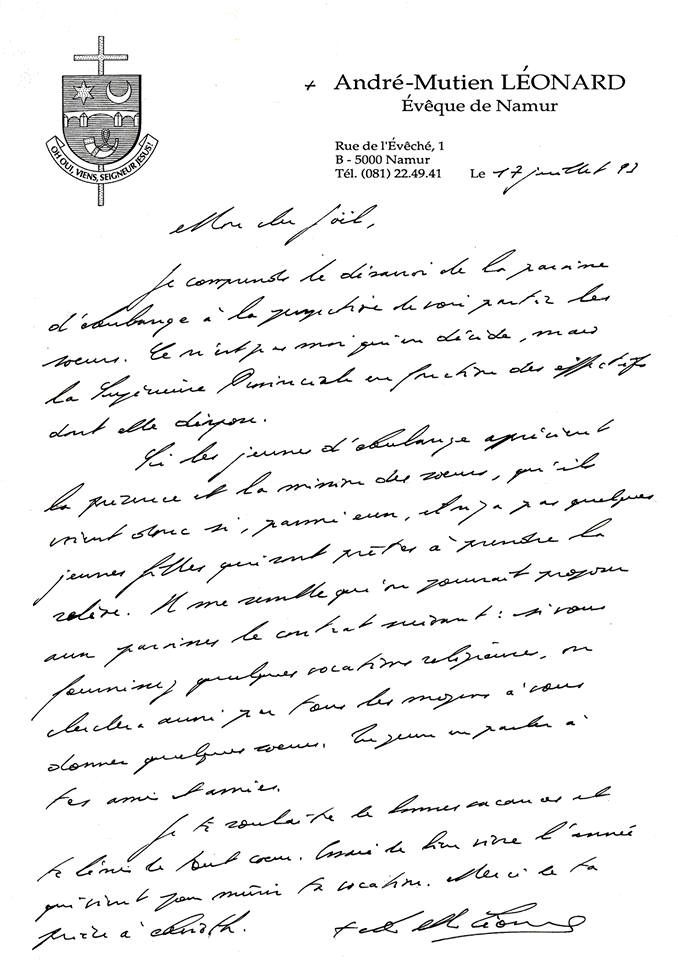 + André-Mutien LÉONARD
Évêque de Namur
OH OUI, VIENS, SEIGNEUR JÉSUS!
Rue de l'Évêché, 1
B - 5000 Namur
Tél. (081) 22.49.41
Le 17 juillet 93
Mon cher Joël,
Je comprends le désarroi de la paroisse
d'Aubange à la perspective de voir partir les
soeurs. Ce n'est pas moi qui en décide, mais
la Supérieure Provinciale en fonction des effectifs
dont elle dispose.
Si les jeunes d'Aubange apprécient
la présence et la mission des soeurs, qu'ils
voient donc si, parmi eux, il n'y a pas quelques
jeunes filles qui sont prêtes à prendre la
relève. Il me semble qu'on pourrait proposer
aux paroisses le contrat suivant : si vous
fournissez quelques vocations religieuses, on
cherchera aussi par tous les moyens à vous
donner quelques soeurs. Tu peux en parler à
tes amis et amies.
Je te souhaite de bonnes vacances et
te bénis de tout coeur. Essaie de bien vivre l'année
qui vient pour mûrir ta vocation. Merci de ta
prière à
+ Léonard